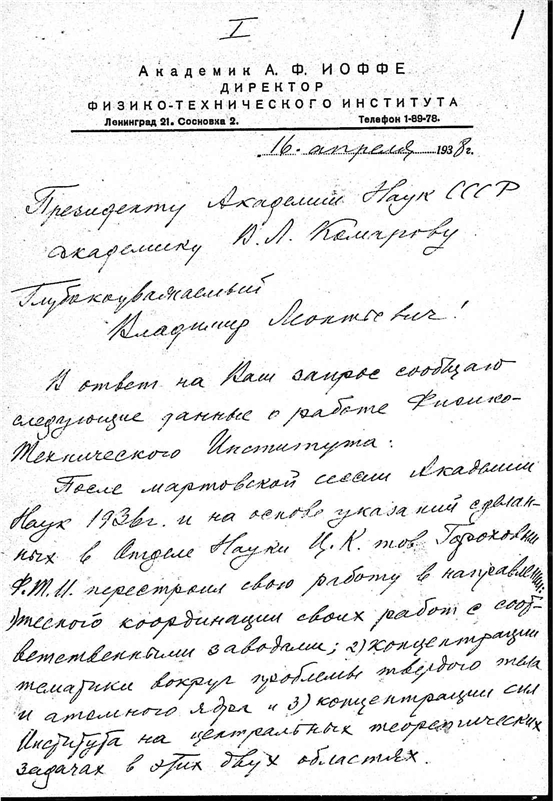 I
1
Академик А. Ф. ИОФФЕ
ДИРЕКТОР
ФИЗИКО-ТЕХНИЧЕСКОГО ИНСТИТУТА
Ленинград 21. Сосновка 2. Телефон 1-89-78.
16 апреля 1938 г.
Президенту Академии Наук СССР
академику В. Л. Комарову
Глубокоуважаемый
Владимир Леонтьевич!
В ответ на Ваш запрос сообщаю
следующие данные о работе Физико-
Технического Института:
После мартовской сессии Академии
Наук 1936 г. и на основе указаний сделан-
ных в Отделе Науки Ц.К. тов
Ф.Т.И. перестроил свою работу в направлении:
1) тесного координации своих работ с соот-
ветственными заводами; 2) концентрации
тематики вокруг проблемы твердого тела
и атомного ядра и 3) концентрации сил
Института на центральных теоретических
задачах в этих двух областях.